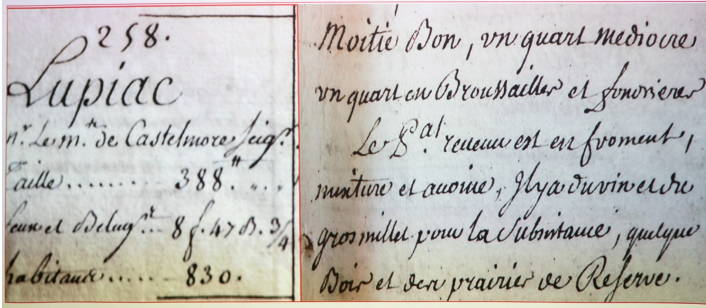 258.
Lupiac
nr. Le mis. de Castelmore seigr.
Taille ........ 388.tt " "
feux et Belugt. ... 8 f. 47 B. 3/4
habitans ..... 830.
Moitié Bon, un quart mediocre
un quart en Broussailles et fondrieres
Le Pal. revenu est en froment,
minture et avoine, Il y a du vin et du
gros millet pour la Subsistance, quelque
Bois et des prairies de Reserve.